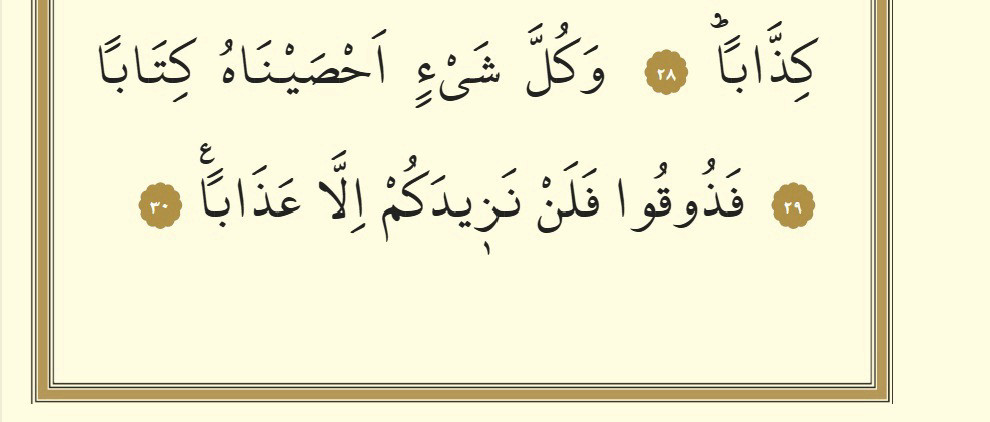 كِذَّابًاۜ ٢٨ وَكُلَّ شَىْءٍ اَحْصَيْنَاهُ كِتَابًا
٢٩ فَذُوقُوا فَلَنْ نَزٖيدَكُمْ اِلَّا عَذَابًاࣖ ٣٠